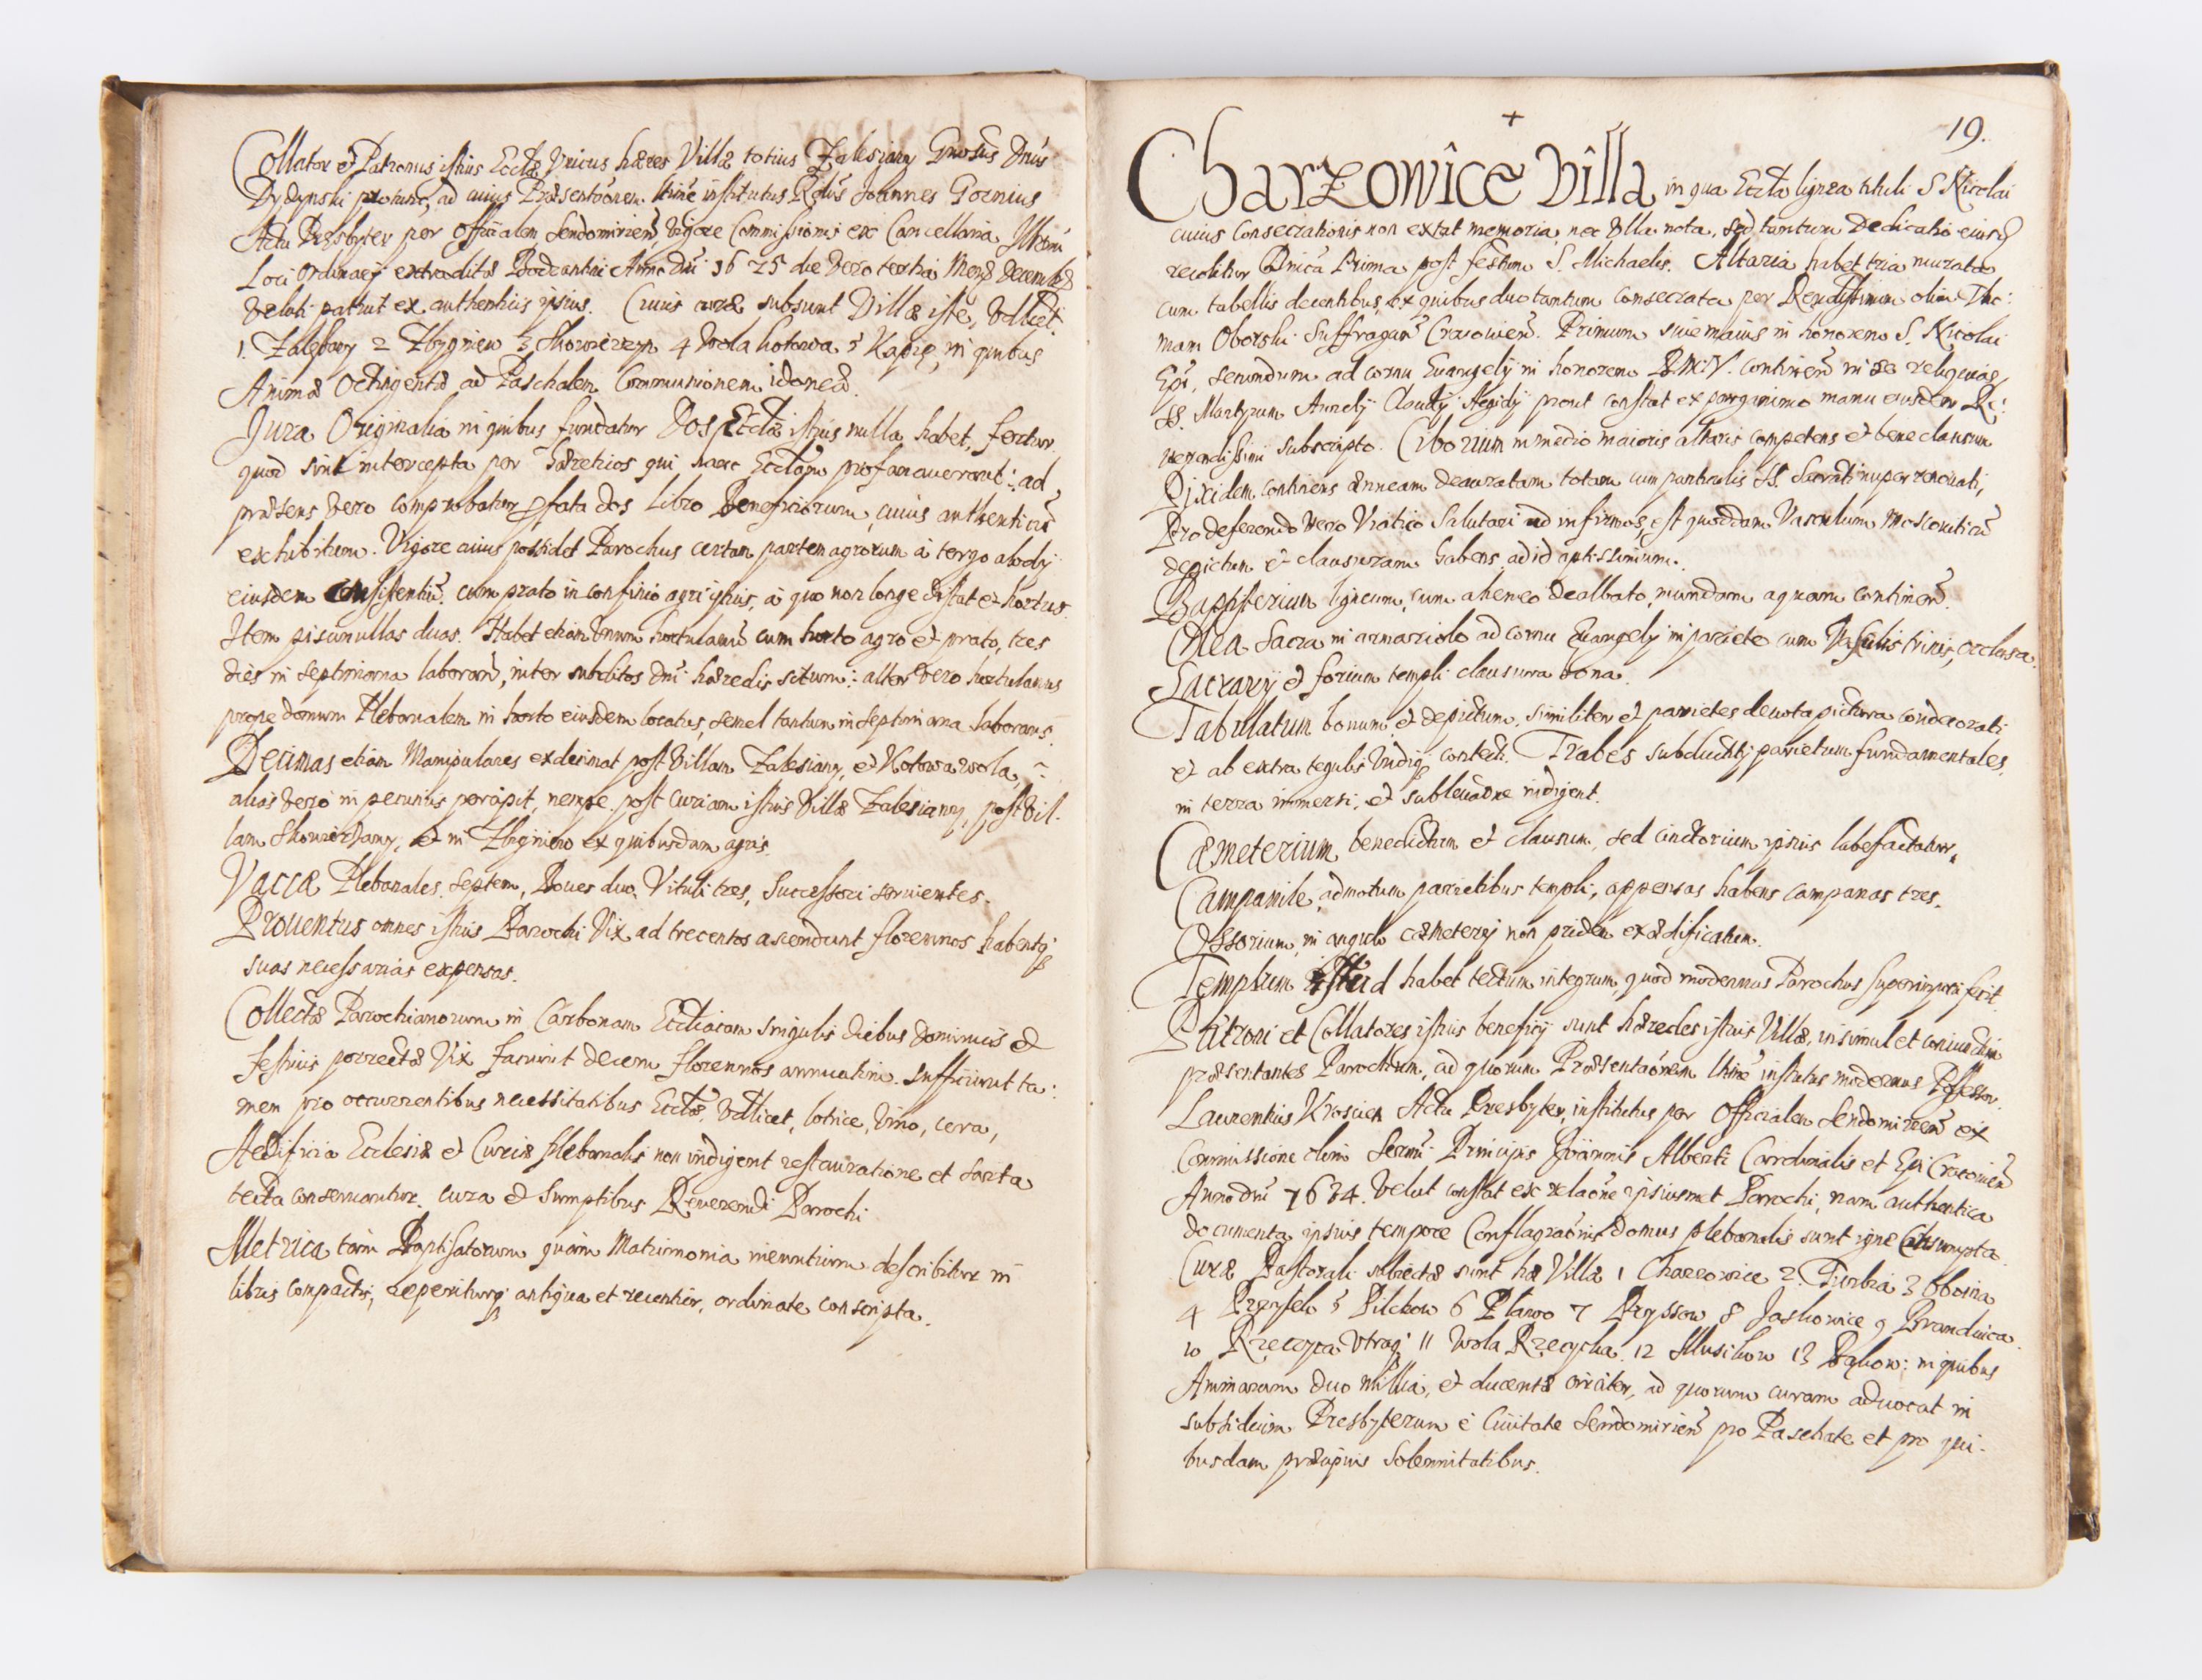 Collator et Patronus istius Eccłæ Vnicus hæres Villæ totius Zalesiany Gnosus Dnūs
Dydynski protunc, ad cuius Præsentaōnem Itime institutus Rdūs Joannes Gornius
Actu Presbyter per Officialem Sendomirien̄, vigore Commissionis ex Cancellaria Illmi
Loci Ordinarij extraditæ Bodzantini Anno Dni 1625 die vero tertia Mens̄ Decembris
veluti patuit ex authenticis ipsius. Cuius curæ subsunt Villæ istæ, videlicet.
1. Zalesany 2 Zbygniew 3 Skowierzyn 4 Wola kotowa 5 Kapię, in quibus
Animæ Octingentæ ad Paschalem Communionem idoneæ.
Jura Originalia in quibus fundatur Dos Eccłæ istius nulla habet, fertur
quod sint intercepta per Hæreticos qui hanc Eccłam profanauerant: ad
præsens vero comprobatur pfata dos Libro Beneficiorum, cuius authenticū
exhibitum. Vigore cuius possidet Parochus certam partem agrorum à tergo
eiusdem consistentiū cum prato in confinio agri istius, à quo non longe distat et hortus.
Item piscinullas duas. Habet etiam vnum hortulanū cum horto agro et prato, tres
dies in septimana laboran̄, inter subditos Dni hæredis situm: alter vero hortulanus
prope domum Plebanalem in horto eiusdem locatus, semel tantum in septimana laborans.
Decimas etiam Manipulares exdecimat post Villam Zalesiany, et Kotowa wola,
alias vero in pecuniis percipit, nempe post curiam istius Villæ Zalesiany, post Vil-
lam Skowierzany, et in Zbigniew ex quibusdam agris.
Vaccæ Plebanales Septem, Boues duo, Vituli tres, Successori seruientes.
Prouentus omnes istius Parochi Vix ad trecentos ascendunt florennos habentq̨
suas necessarias expensas.
Collectæ Parochianorum in Carbonam Eccliacam singulis diebus dominicis et
festiuis porrectæ Vix faciunt decem florennos annuatim. Sufficiunt ta:
men pro occurrentibus necessitatibus Eccłæ, videlicet, lotrice, Vino, cera,
Aedificia Ecclesiæ et Curiæ plebanalis non indigent restauratione et sarta
tecta conseruantur cura et sumptibus Reuerendi Parochi
Metrica tam Baptisatorum quàm Matrimonia ineuntium describitur in
libris compactis, reperiturq̨ antiqua et recentior, ordinate conscripta.
+
19.
Charzowice Villa in qua Eccła lignea tituli S Nicolai
cuius Consecrationis non extat memoria, nec vlla nota, sed tantum Dedicatio eiusd̄
recolitur Dnica Prima post festum S. Michaelis. Altaria habet tria murata
cum tabellis decentibus, ex quibus duo tantum consecrata per Rendissimum olim Tho:
mam Oborski Suffragan̄ Cracouien̄. Primum siue maius in honorem S. Nicolai
Epi, secundum ad cornu Euangelij in honorem B.M.V. continen̄ in se reliquias
SS. Martyrum Aurelij Claudij Aegidij prout constat ex pergamino manu eiusdem Re:
uerendissimi subscripto. Ciborium in medio maioris altaris competens et bene clausum
Pixidem continens æneam deauratam totam cum particulis SS. Sacrati nuper renouati,
Pro deferendo vero Viatico Salutari ad infirmos, est quoddam Vasculum Moscouiticū
depictum et clausuram habens, ad id aptissimum.
Baptisterium ligneum, cum aheneo dealbato, mundam aquam continen̄.
Olea Sacra in armariolo ad cornu Euangelij in pariete cum Vasculis trinis, occlusa.
Sacrarij et forium templi clausura bona.
Tabulatum bonum et depictum, similiter et parietes deuota pictura condecorati
et ab extra tegulis vndiq̨ contecti. Trabes subductitij parietum fundamentales,
in terra immersi, et subleuatione indigent.
Cæmeterium benedictum et clausum, sed cinctorium ipsius labefactatur.
Campanile admotum parietibus templi, appensas habens campanas tres.
Ossorium in angulo cæmeterij non pridem exædificatum.
Templum istud habet tectum integrum, quod modernus Parochus superimponi fecit.
Patroni et Collatores istius beneficij sunt hæredes istius Villæ, insimul et coniunctim
præsentantes Parochum, ad quorum Præsentaōnem Itimē institutus modernus Possessor
Laurentius Kroscien Actu Presbyter, institutus per Officialem Sendomirien̄ ex
Commissione olim Sermi Principis Joannis Alberti Cardinalis et Epi Cracouien̄
Anno dni 1634. velut constat ex relaōne ipsiusmet Parochi, nam authentica
documenta ipsius tempore Conflagraōnis domus plebanalis sunt igne consumpta.
Curæ Pastorali subiectæ sunt hæ Villæ 1 Charzowice 2. Turbia 3 Oboina
4 Przyszek 5 Pilchow 6 Plawo 7 Przyszow 8 Jaskowice 9 Brandwica
10 Rzeczyca Vtraq̨ 11 Wola Rzeczycka 12 Musikow 13 Bąkow: in quibus
Animarum duo millia, et ducentæ circiter, ad quorum curam aduocat in
subsidium Presbyterum è Ciuitate Sendomirien̄ pro Paschate et pro qui-
busdam præcipuis Solennitatibus.